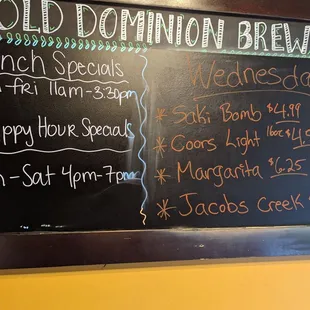 OLD DOMINION BREW
nch Specials
-Fri 11am-3:30pm
ppy Hour Specials
-Sat 4pm-7pm
Wednesda
* Saki Bomb $4.99
* Coors Light 16oz $4.5
* Margarita $6.25
* Jacobs Creek